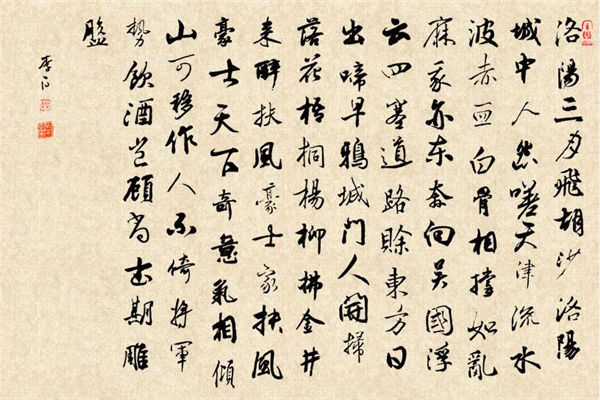 洛陽三月飛胡沙洛陽
城中人怨嗟天津流水
波赤血白骨相撐如亂
麻我亦东奔向吳國浮
云四塞道路賒東方日
出啼早鴉城門人開掃
落花梧桐楊柳拂金井
来醉扶風豪士家扶風
豪士天下奇意氣相傾
山可移作人不倚将軍
勢飲酒豈顧尚书期雕
盤
李白